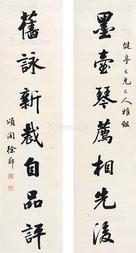 墨壺琴薦相先後
健亭大兄大人雅鑒
舊詠新裁自品評
頌閣徐郙